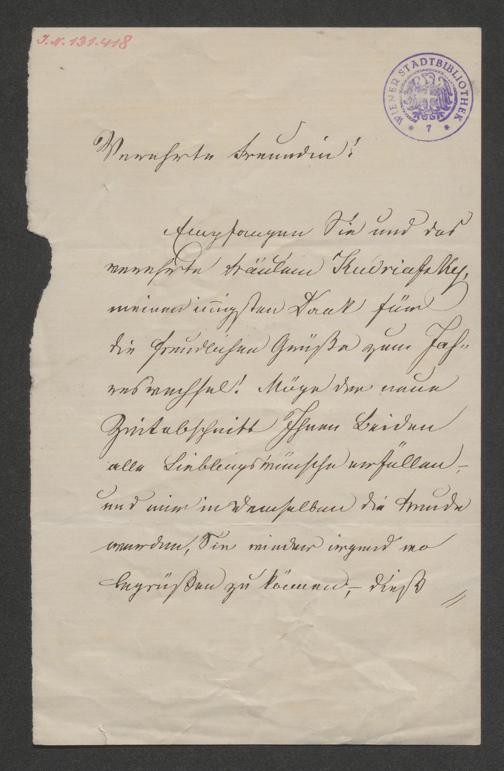 J.N. 131.418
WIENER STADTBIBLIOTHEK
* 7 *
Verehrte Freundin!
Empfangen Sie und das
verehrte Fräulein Kudriafsky,
meinen innigsten Dank für
die freundlichen Grüße zum Jah-
reswechsel! Möge der neue
Zeitabschnitt Ihnen Beiden
alle Lieblingswünsche erfüllen,
und mir in demselben die Freude
werden, Sie wieder irgend wo
begrüßen zu können, – dieß